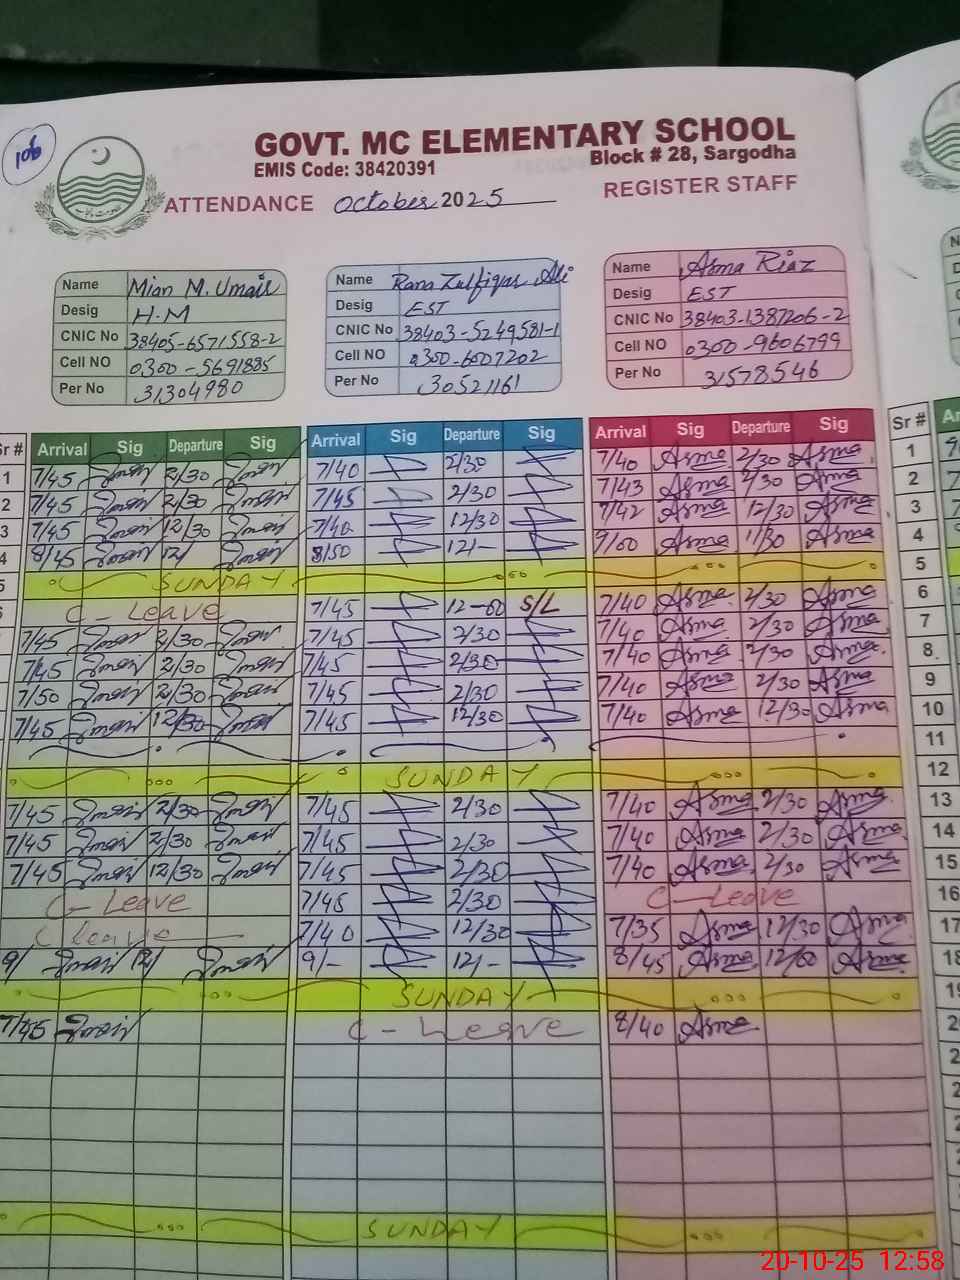 106
GOVT. MC ELEMENTARY SCHOOL
EMIS Code: 38420391 Block # 28, Sargodha
ATTENDANCE October 2025 REGISTER STAFF
Name Mian M. Umair Name Rana Zulfiqar Ali Name Asma Riaz
Desig H.M Desig EST Desig EST
CNIC No 38405-6571558-2 CNIC No 38403-5249581-1 CNIC No 38403-1387206-2
Cell NO 0300-5691885 Cell NO 0300-6007202 Cell NO 0300-9606799
Per No 31304980 Per No 30521161 Per No 31578546
Sr # Arrival Sig Departure Sig Arrival Sig Departure Sig Arrival Sig Departure Sig Sr #
1 7/45 2/30 7/40 2/30 7/40 Asma 2/30 Asma 1
2 7/45 2/30 7/45 2/30 7/43 Asma 2/30 Asma 2
3 7/45 12/30 7/40 12/30 7/42 Asma 12/30 Asma 3
4 8/45 12/ 8/50 12/- 9/00 Asma 11/30 Asma 4
5 SUNDAY 5
6 C - Leave 7/45 12-00 S/L 7/40 Asma 2/30 Asma 6
7/45 2/30 7/45 2/30 7/40 Asma 2/30 Asma 7
7/45 2/30 7/45 2/30 7/40 Asma 2/30 Asma 8
7/50 2/30 7/45 2/30 7/40 Asma 2/30 Asma 9
7/45 12/30 7/45 12/30 7/40 Asma 12/30 Asma 10
11
SUNDAY 12
7/45 2/30 7/45 2/30 7/40 Asma 2/30 Asma 13
7/45 2/30 7/45 2/30 7/40 Asma 2/30 Asma 14
7/45 12/30 7/45 2/30 7/40 Asma 2/30 Asma 15
C - Leave 7/45 2/30 C - Leave 16
C Leave 7/40 12/30 7/35 Asma 12/30 Asma 17
9/ 12/ 9/- 12/- 8/45 Asma 12/00 Asma 18
SUNDAY 19
7/45 C - Leave 8/40 Asma
SUNDAY
20-10-25 12:58